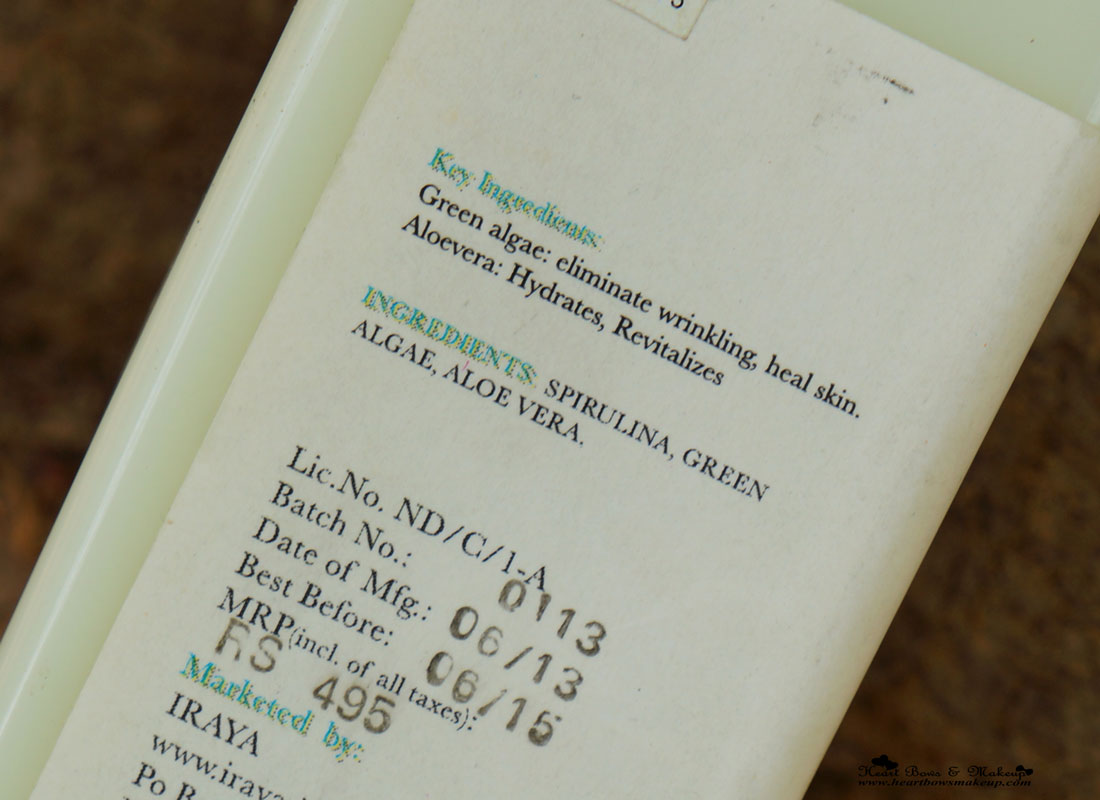 Key Ingredients:
Green algae: eliminate wrinkling, heal skin.
Aloevera: Hydrates, Revitalizes
INGREDIENTS: SPIRULINA, GREEN
ALGAE, ALOE VERA.
Lic.No. ND/C/1-A
Batch No.: 0113
Date of Mfg.: 06/13
Best Before: 06/15
MRP(incl. of all taxes):
RS 495
Marketed by:
IRAYA
www.iraya
Po B
Heart Bows & Makeup
www.heartbowsmakeup.com